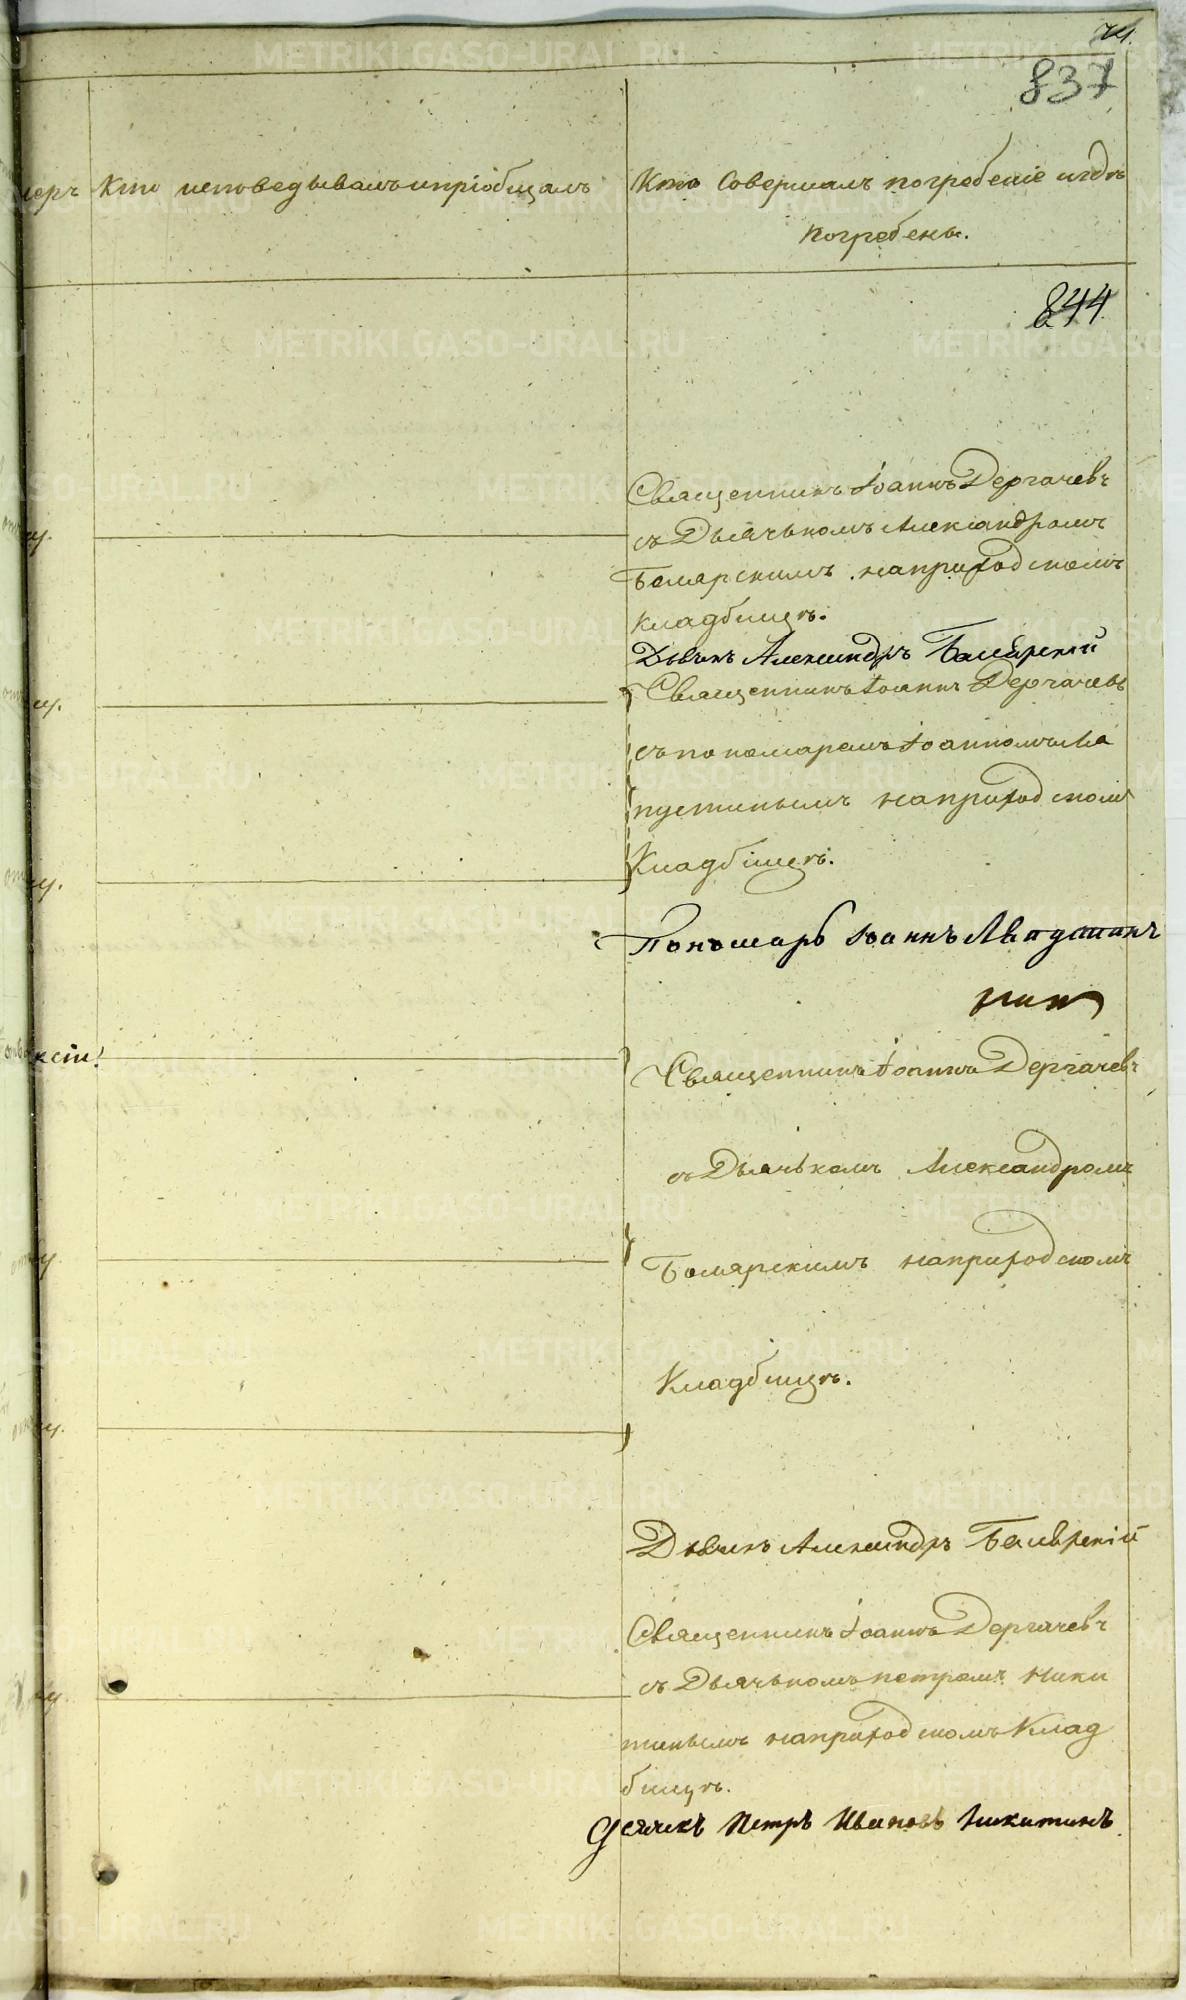 837
Кто исповедывалъ и пріобщалъ
Кто Совершалъ погребеніе и гдѣ
погребены.
844
Священникъ Іоаннъ Дергачевъ
съ Дьячькомъ Александромъ
Боярскимъ на приходскомъ
кладбищѣ.
Дьячкъ Александръ
Священникъ Іоаннъ Дергачевъ
съ пономаремъ Іоанномъ Ла
пустинымъ на приходскомъ
Кладбищѣ.
Пономарь Іоаннъ
Священникъ Іоаннъ Дергачевъ
съ Дьячькомъ Александромъ
Боярскимъ на приходскомъ
Кладбищѣ.
Александръ
Священникъ Іоаннъ Дергачевъ
съ Дьячькомъ Петромъ Ники
тинымъ на приходскомъ Клад
бищѣ.
Петръ Ивановъ Никитинъ
METRIKI.GASO-URAL.RU